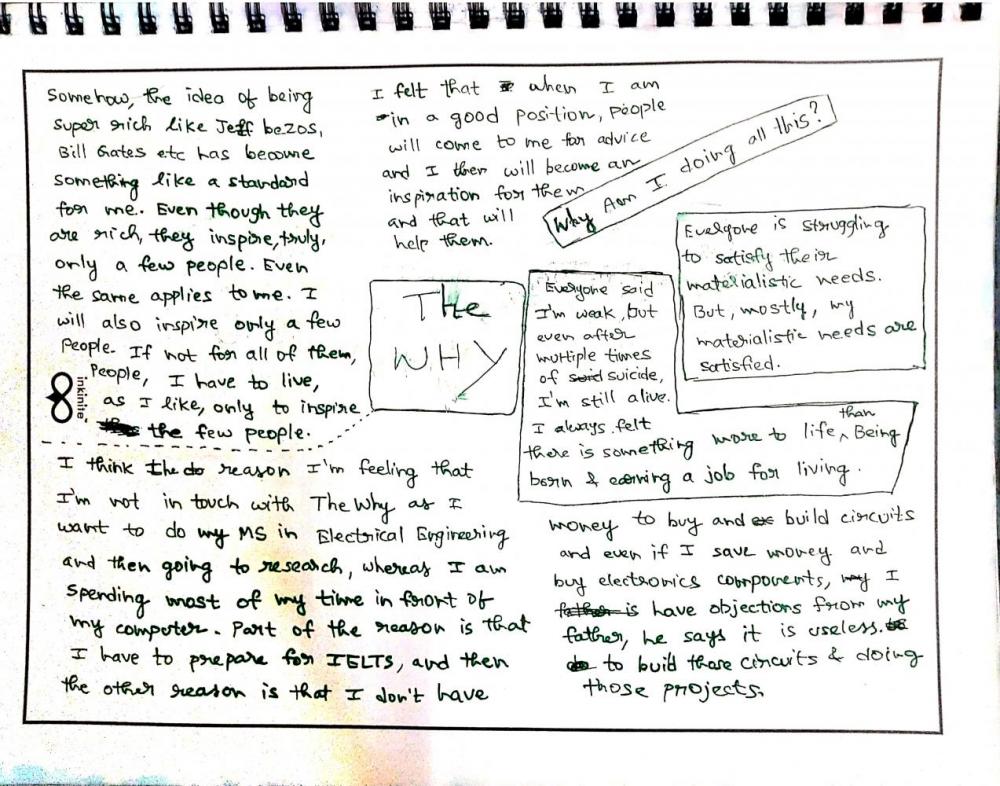 Somehow, the idea of being
super rich like Jeff bezos,
Bill Gates etc has become
something like a standard
for me. Even though they
are rich, they inspire, truly,
only a few people. Even
the same applies to me. I
will also inspire only a few
People. If not for all of them,
People, I have to live,
as I like, only to inspire
the few people.
inkinite
I felt that when I am
in a good position, people
will come to me for advice
and I then will become an
inspiration for them
and that will
help them.
Why Am I doing all this?
The
WHY
Everyone said
I'm weak, but
even after
multiple times
of suicide,
I'm still alive.
I always felt
there is something more to life, than Being
born & earning a job for living.
Everyone is struggling
to satisfy their
materialistic needs.
But, mostly, my
materialistic needs are
satisfied.
I think the reason I'm feeling that
I'm not in touch with The Why as I
want to do my MS in Electrical Engineering
and then going to research, whereas I am
spending most of my time in front of
my computer. Part of the reason is that
I have to prepare for IELTS, and then
the other reason is that I don't have
money to buy and build circuits
and even if I save money and
buy electronics components, I
have objections from my
father, he says it is useless.
to build those circuits & doing
those projects.